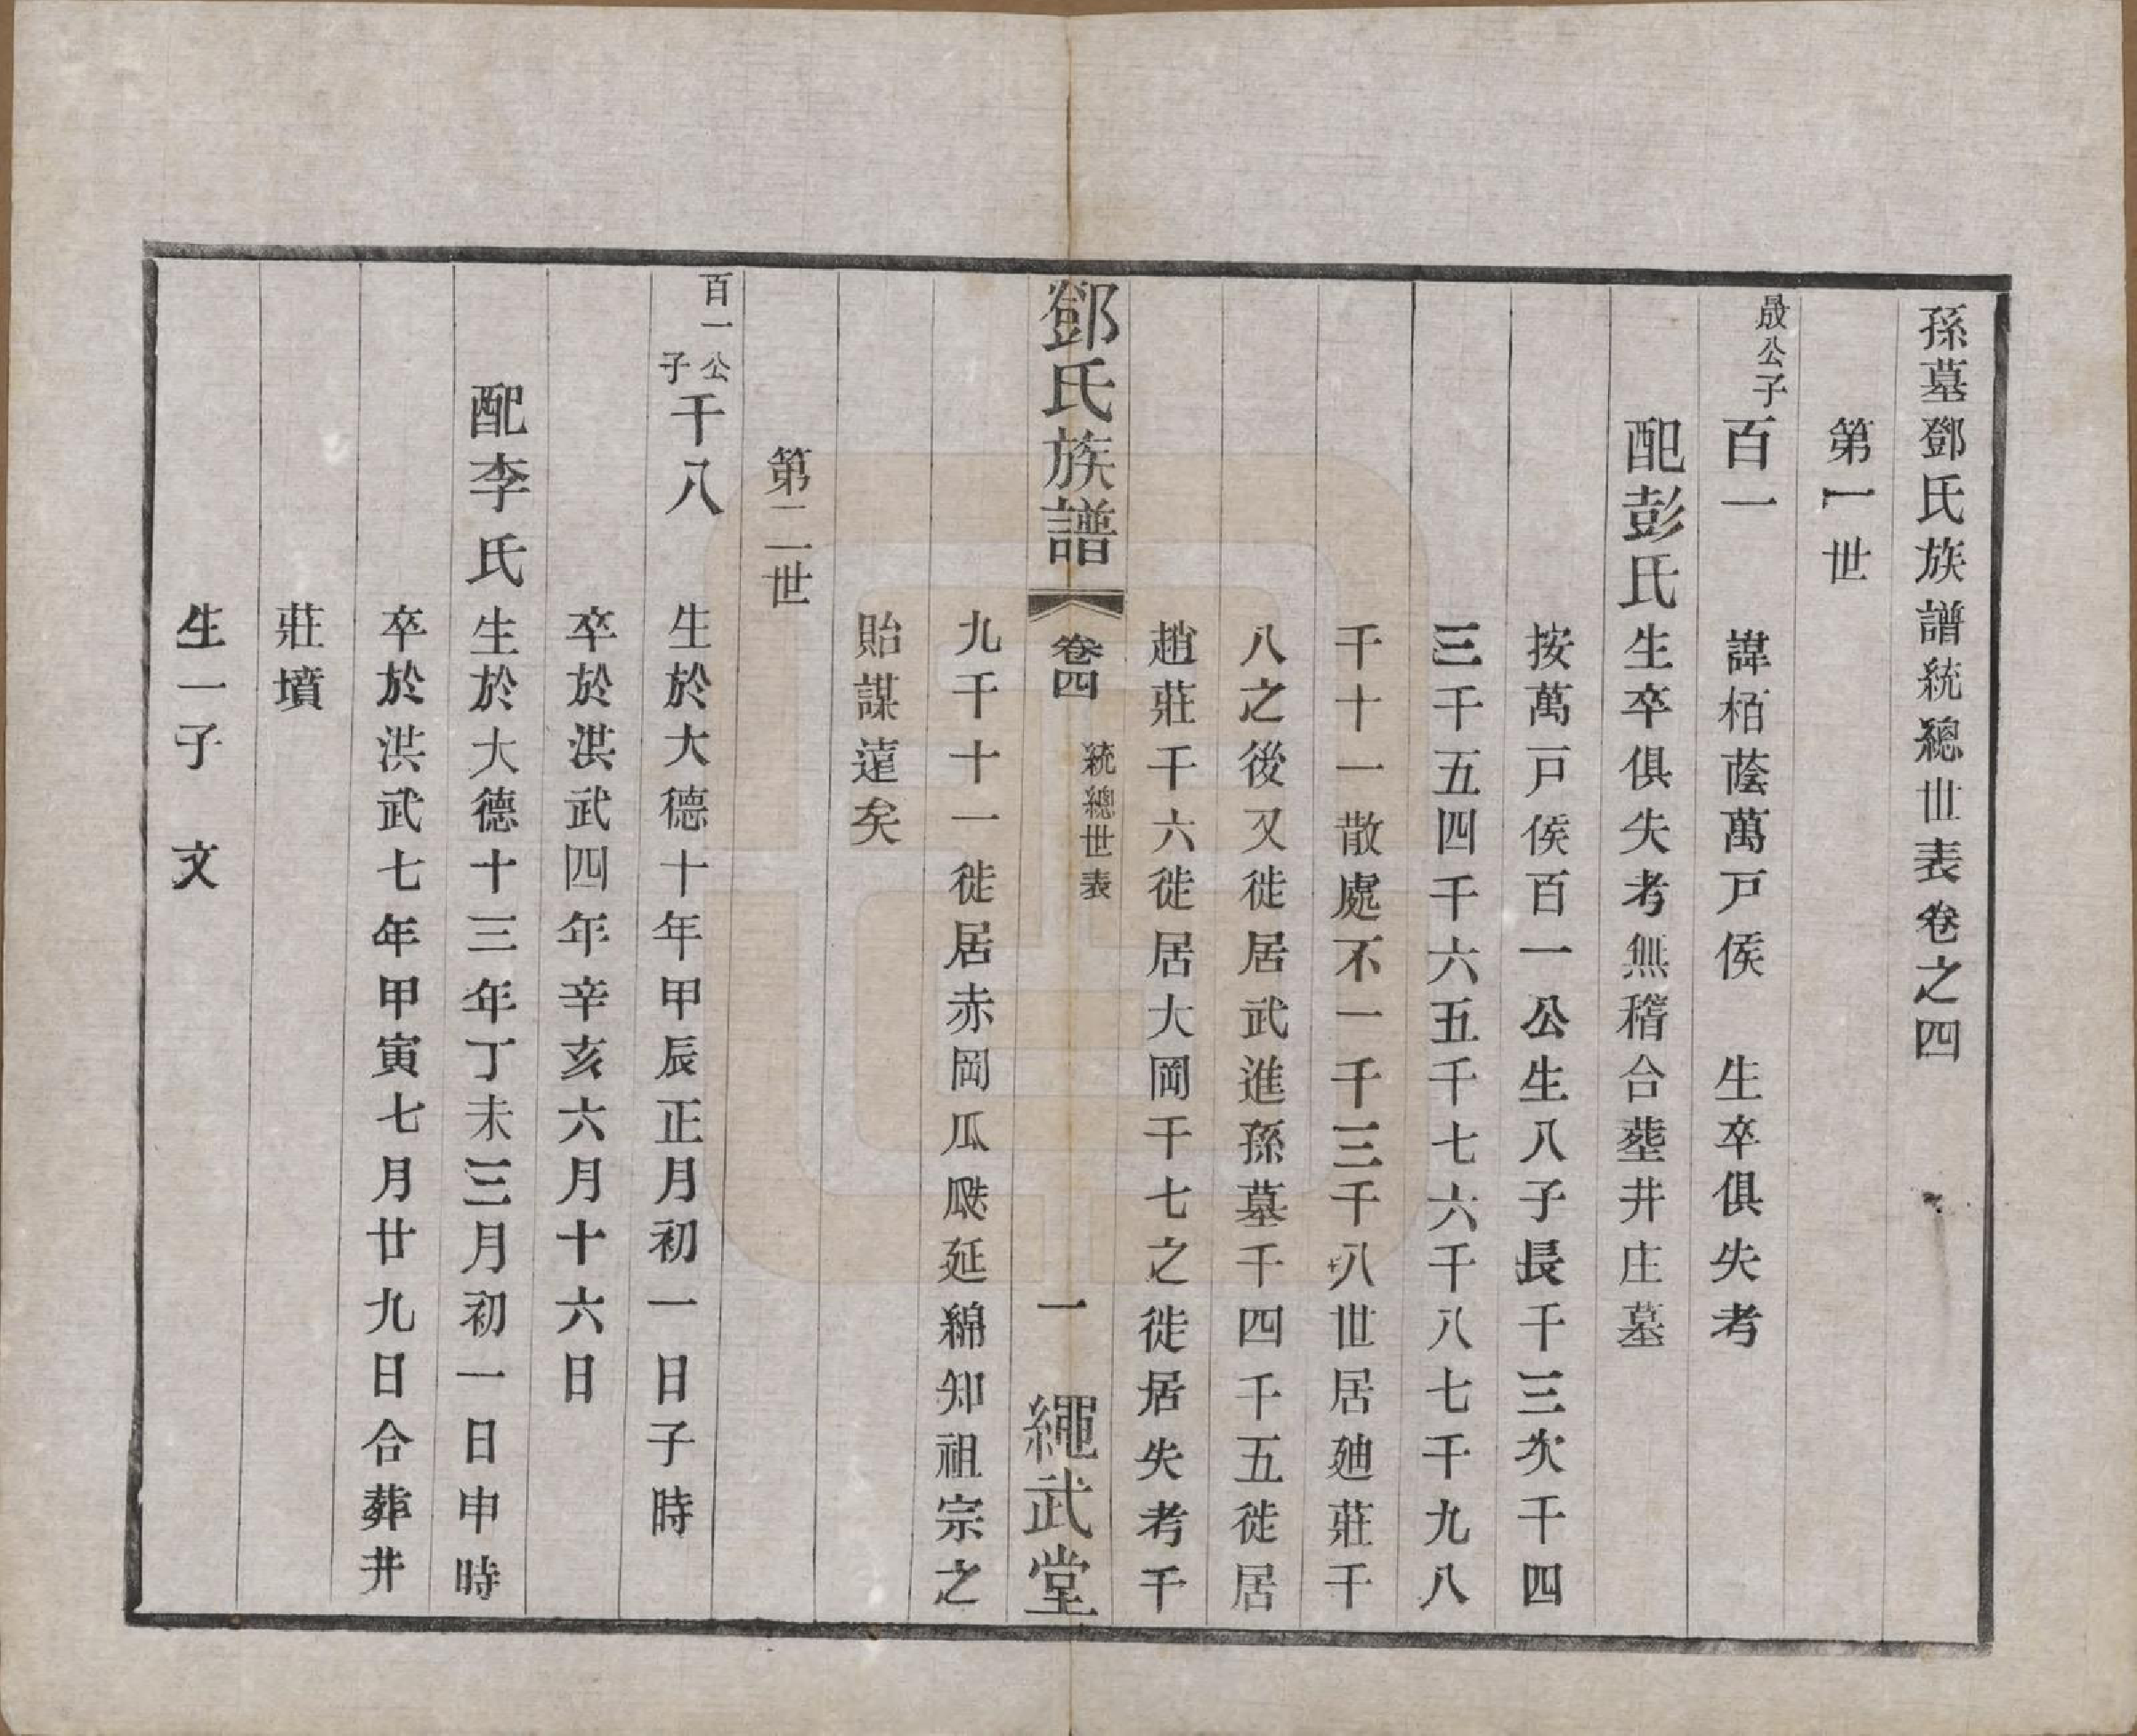 孫墓鄧氏族譜統總世表卷之四
第一世
晟公子 百一 諱栢蔭萬戸侯 生卒俱失考
配彭氏生卒俱失考無稽合塟井庄墓
按萬戸侯百一公生八子長千三次千四
三千五四千六五千七六千八七千九八
千十一散處不一千三千八世居廸莊千
八之後又徙居武進孫墓千四千五徙居
趙莊千六徙居大岡千七之徙居失考千
九千十一徙居赤岡瓜瓞延綿知祖宗之
貽謀遠矣
鄧氏族譜 卷四 統總世表 一 繩武堂
第二世
百一公子 千八 生於大德十年甲辰正月初一日子時
卒於洪武四年辛亥六月十六日
配李氏生於大德十三年丁未三月初一日申時
卒於洪武七年甲寅七月廿九日合葬井
莊墳
生一子 文